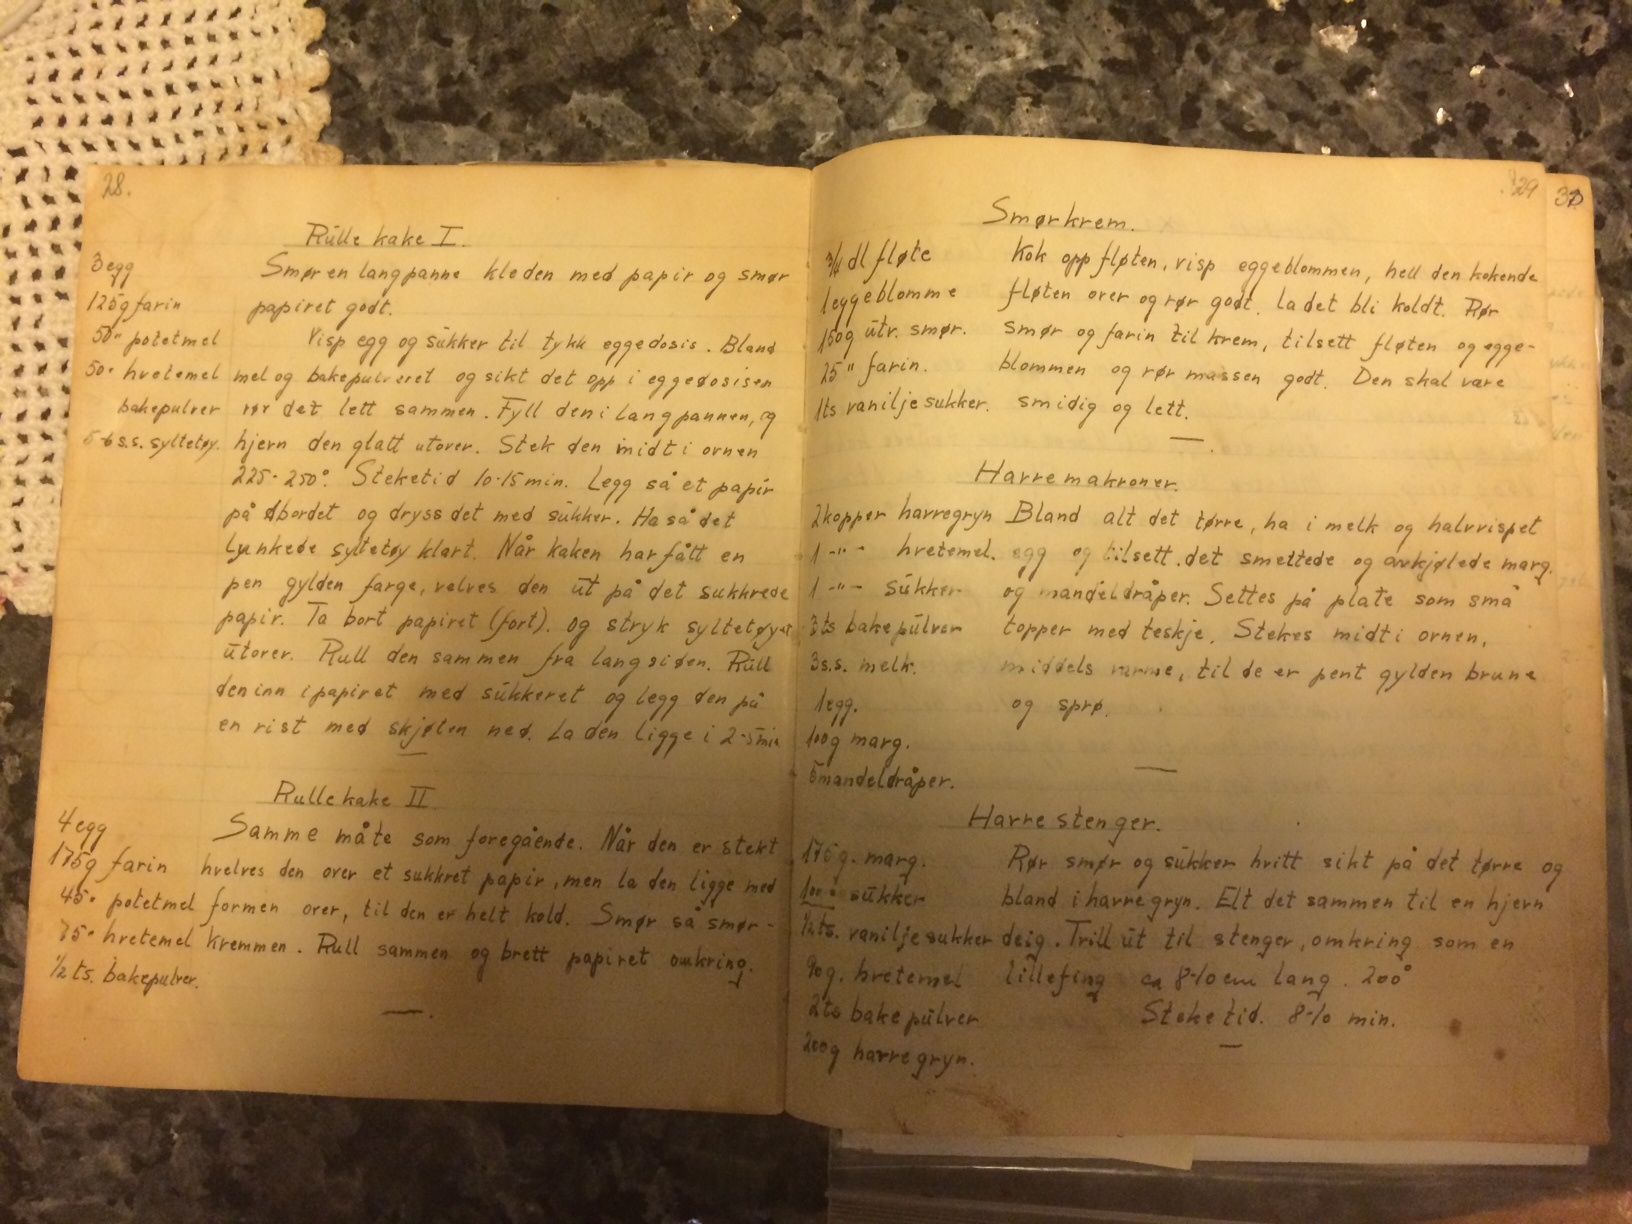 28.
Rulle kake I.
3 egg
125g farin
50 " potetmel
50 " hvetemel
bakepulver
5-6 s.s. syltetøy.
Smør en langpanne kle den med papir og smør
papiret godt.
Visp egg og sukker til tykk eggedosis. Bland
mel og bakepulveret og sikt det opp i eggedosisen
rør det lett sammen. Fyll den i langpannen, og
hjern den glatt utover. Stek den midt i ovnen
225-250°. Steketid 10-15 min. Legg så et papir
på bordet og dryss det med sukker. Ha så det
lunkede syltetøy klart. Når kaken har fått en
pen gylden farge, velves den ut på det sukkrede
papir. Ta bort papiret (fort). og stryk syltetøyet
utover. Rull den sammen fra langsiden. Rull
den inn i papiret med sukkeret og legg den på
en rist med skjøten ned. La den ligge i 2-5 min
Rulle kake II
4 egg
175g farin
45 " potetmel
75 " hvetemel
1/2 ts. bakepulver.
Samme måte som foregående. Når den er stekt
hvelves den over et sukkret papir, men la den ligge med
formen over, til den er helt kold. Smør så smør-
kremmen. Rull sammen og brett papiret omkring.
29
Smørkrem.
3/4 dl fløte
1 eggeblomme
150g utv. smør.
25 " farin.
1ts vaniljesukker.
Kok opp fløten, visp eggeblommen, hell den kokende
fløten over og rør godt. la det bli koldt. Rør
smør og farin til krem, tilsett fløten og egge-
blommen og rør massen godt. Den skal være
smidig og lett.
Havremakroner.
2 kopper havregryn
1 -"- hvetemel.
1 -"- sukker
3 ts bakepulver
3 s.s. melk.
1 egg.
100g marg.
5 mandeldråper.
Bland alt det tørre, ha i melk og halvvispet
egg og tilsett det smeltede og avkjølede marg.
og mandeldråper. Settes på plate som små
topper med teskje. Stekes midt i ovnen,
middels varme, til de er pent gylden brune
og sprø.
Havre stenger.
175g. marg.
100 " sukker
1/2 ts. vaniljesukker
90g. hvetemel
2 ts bakepulver
200g havregryn.
Rør smør og sukker hvitt sikt på det tørre og
bland i havregryn. Elt det sammen til en hjern
deig. Trill ut til stenger, omkring som en
lillefing ca 8-10 cm lang. 200°
Steketid. 8-10 min.